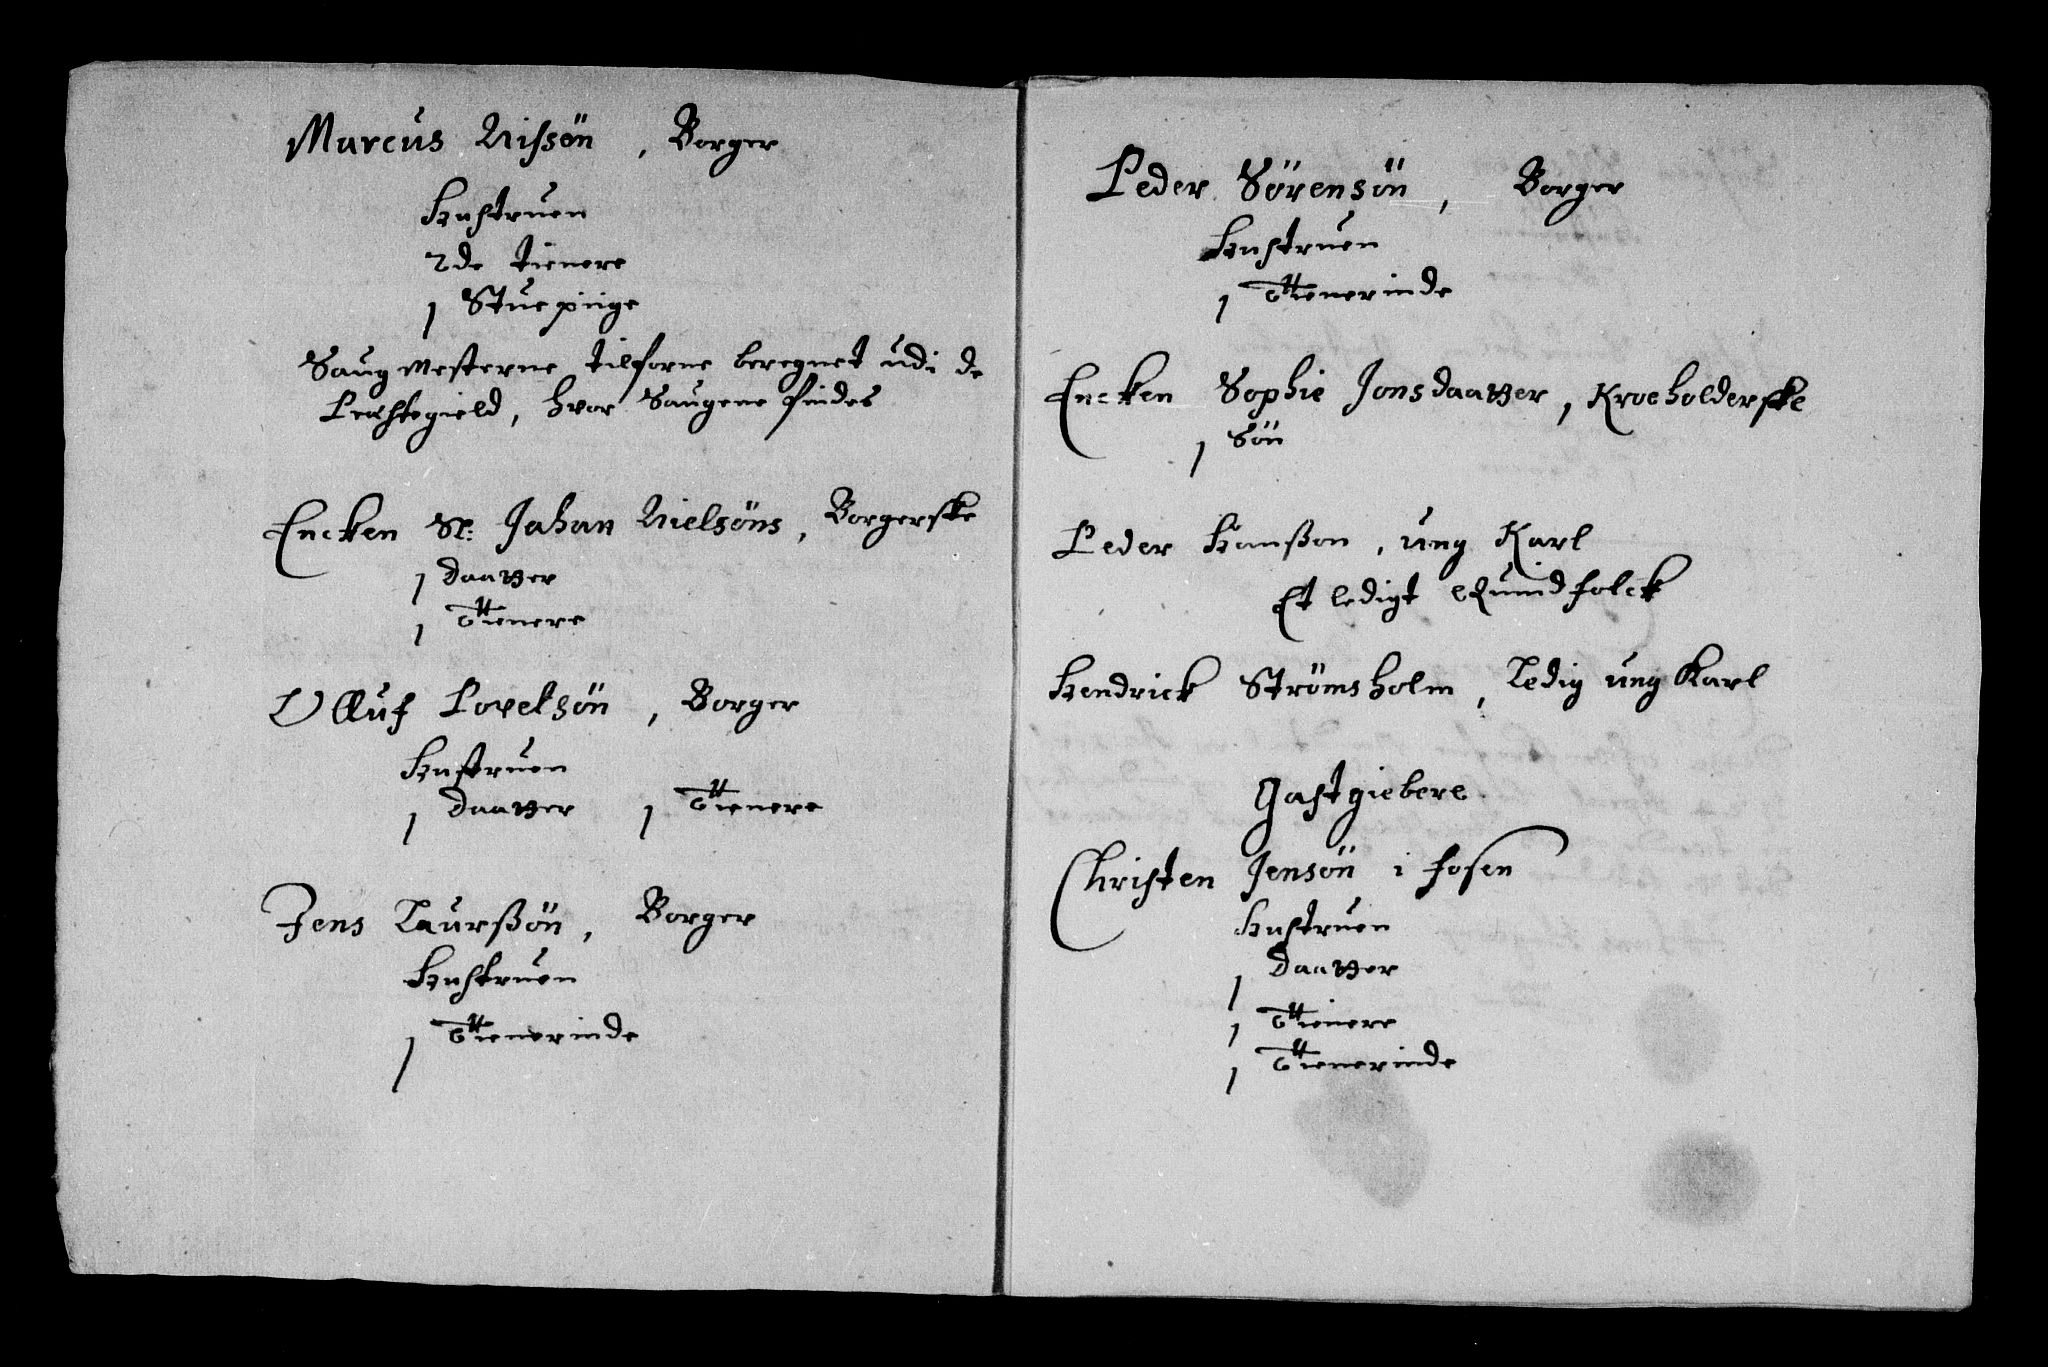 Marcus Nissøn, Borger
Hustruen
2de tienere
1 Stue piige
Saugmesterne tilforne beregnet udi de
Præstegield, hvor Saugene findes
Encken Sl: Johan Nielsøns, Borgerske
1 Daatter
1 Tienere
Olluf Povelsøn, Borger
Hustruen
1 Daatter 1 Tienere
Jens Laurssøn, Borger
Hustruen
1 Tienerinde
Peder Sørensøn, Borger
Hustruen
1 Tienerinde
Encken Sophie Jonsdaatter, Kroeholderske
1 Søn
Peder Hanßon, ung Karl
Et ledigt qvindfolck
Hendrick Strømsholm, Ledig ung Karl
Gastgiebere
Christen Jensøn i fosen
Hustruen
1 Daatter
1 Tienere
1 Tienerinde